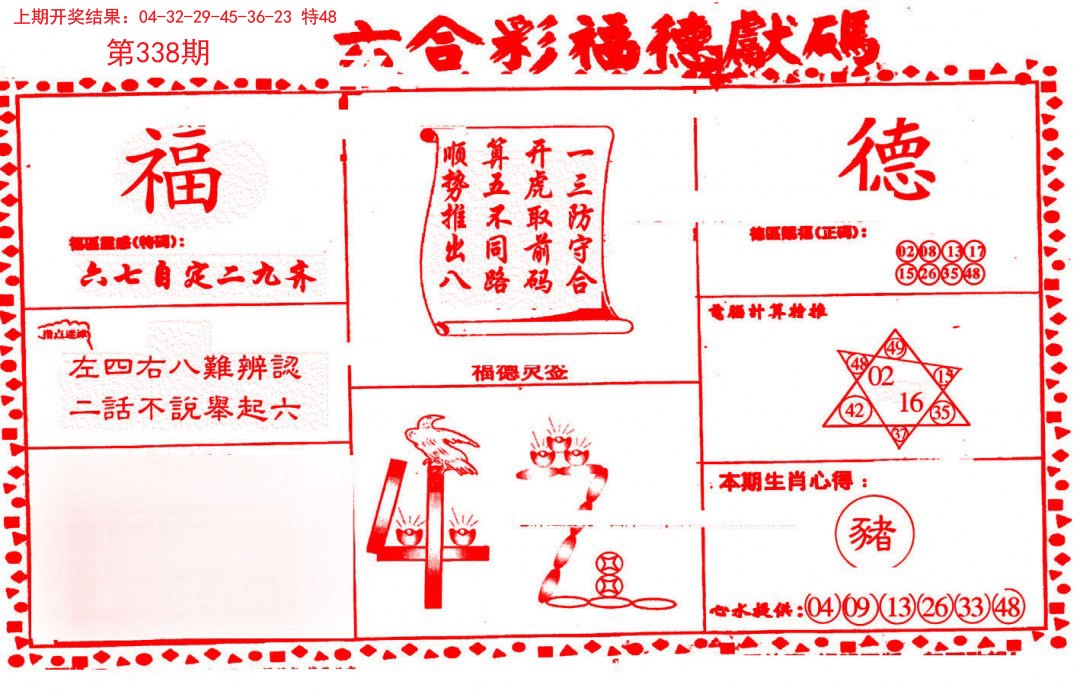 上期开奖结果：04-32-29-45-36-23 特48
第338期
六合彩福德獻碼
福
福區靈感(特碼)：
六七自定二九齐
指点迷津
左四右八難辨認
二話不說舉起六
一三防守合
开虎取前码
算五不同路
顺势推出八
福德灵签
42
德
德區賜福(正碼)：
02 08 13 17
15 26 35 48
電腦計算榜推
49
48 02 15
42 16 35
37
本期生肖心得：
豬
心水提供：04 09 13 26 33 48